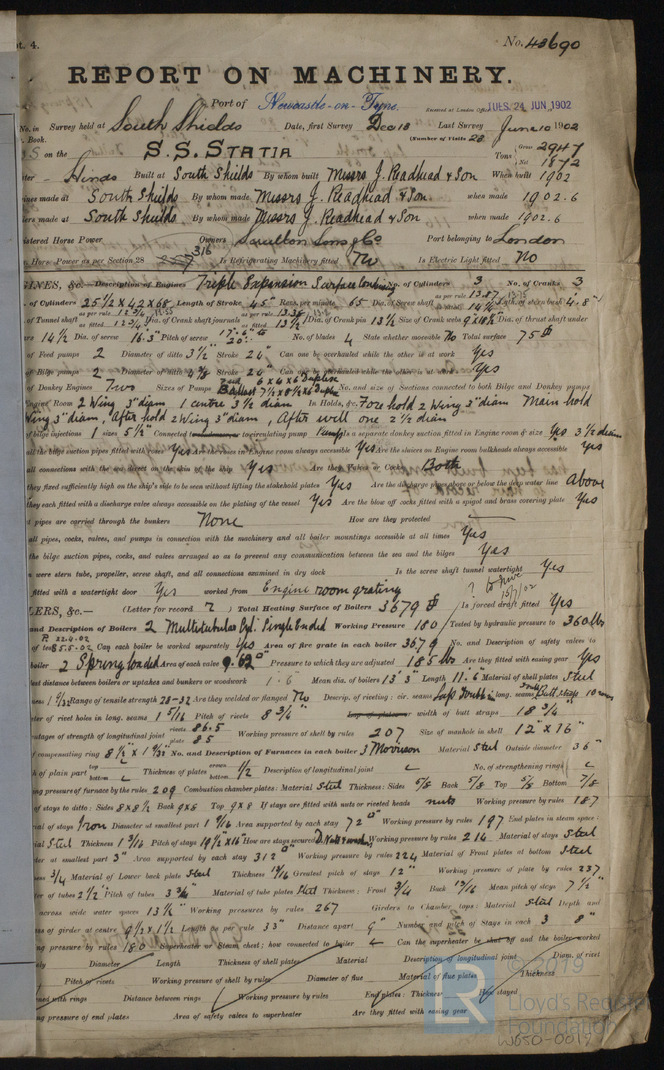 pt. 4. No. 43690
REPORT ON MACHINERY.
Port of Newcastle-on-Tyne. Received at London Office TUES. 24 JUN 1902
No. in Survey held at South Shields Date, first Survey Dec 18 Last Survey June 10 1902
Book. (Number of Visits 28
on the S.S. STATIA Tons Gross 2947 Net 1872
Built at South Shields By whom built Messrs J. Readhead & Son When built 1902
ines made at South Shields By whom made Messrs J. Readhead & Son when made 1902.6
ers made at South Shields By whom made Messrs J. Readhead & Son when made 1902.6
istered Horse Power Owners & Co Port belonging to London
Horse Power as per Section 28 316 Is Refrigerating Machinery fitted No Is Electric Light fitted No
GINES, &c.— Description of Engines Triple Expansion Surface Condensing No. of Cylinders 3 No. of Cranks 3
of Cylinders 25½ x 42 x 68 Length of Stroke 45" Revs. per minute 65 Dia. of Screw shaft as per rule 13.87
of Tunnel shaft as fitted 12¾ Dia. of Crank shaft journals as fitted 13½ Dia. of Crank pin 13½ Size of Crank webs Dia. of thrust shaft under
14½ Dia. of screw 16.3 Pitch of screw No. of blades 4 State whether moveable No Total surface 75
of Feed pumps 2 Diameter of ditto 3½" Stroke 24" Can one be overhauled while the other is at work Yes
of Bilge pumps 2 Diameter of ditto Stroke 24" Can one be overhauled while the other is at work Yes
of Donkey Engines Two Sizes of Pumps Ballast 6 x 4 x 6 Duplex No. and size of Suctions connected to both Bilge and Donkey pumps
Engine Room 2 Wing 3" diam 1 centre 3½ diam In Holds, &c. Fore hold 2 Wing 3" diam Main hold
Wing 3" diam, After hold 2 Wing 3" diam, After well one 2½ diam
of bilge injections 1 sizes 5½" Connected to circulating pump Is a separate donkey suction fitted in Engine room & size Yes 3½ diam
all the bilge suction pipes fitted with roses Yes Are the roses in Engine room always accessible Yes Are the sluices on Engine room bulkheads always accessible Yes
all connections with the sea direct on the skin of the ship Yes Are they Valves or Cocks Both
they fixed sufficiently high on the ship's side to be seen without lifting the stokehold plates Yes Are the discharge pipes above or below the deep water line Above
they each fitted with a discharge valve always accessible on the plating of the vessel Yes Are the blow off cocks fitted with a spigot and brass covering plate Yes
pipes are carried through the bunkers None How are they protected
all pipes, cocks, valves, and pumps in connection with the machinery and all boiler mountings accessible at all times Yes
the bilge suction pipes, cocks, and valves arranged so as to prevent any communication between the sea and the bilges Yes
were stern tube, propeller, screw shaft, and all connections examined in dry dock Is the screw shaft tunnel watertight Yes
fitted with a watertight door Yes worked from Engine room grating
LERS, &c.— (Letter for record ) Total Heating Surface of Boilers 3679 Is forced draft fitted Yes
and Description of Boilers 2 Multitubular Cyl. Single Ended Working Pressure 180 Tested by hydraulic pressure to 360 lbs
of test Can each boiler be worked separately Yes Area of fire grate in each boiler No. and Description of safety valves to
boiler 2 Spring loaded Area of each valve 9.62 Pressure to which they are adjusted 185 lbs Are they fitted with easing gear Yes
est distance between boilers or uptakes and bunkers or woodwork 1.6" Mean dia. of boilers 13'3" Length 11.6" Material of shell plates Steel
Range of tensile strength 28-32 Are they welded or flanged No Descrip. of riveting: cir. seams Lap long. seams Butt straps
ter of rivet holes in long. seams 1 5/16 Pitch of rivets 8¾" width of butt straps 18¾"
entages of strength of longitudinal joint rivets 86.5 plate 85 Working pressure of shell by rules 207 Size of manhole in shell 12" x 16"
of compensating ring No. and Description of Furnaces in each boiler 3 Morison Material Steel Outside diameter 36"
of plain part top bottom Thickness of plates crown bottom 1/2 Description of longitudinal joint No. of strengthening rings
ng pressure of furnace by the rules 209 Combustion chamber plates: Material Steel Thickness: Sides 5/8 Back 5/8 Top 5/8 Bottom 7/8
of stays to ditto: Sides 8 x 8½ Back 9 x 8 Top 9 x 8 If stays are fitted with nuts or riveted heads nuts Working pressure by rules 187
ial of stays Iron Diameter at smallest part 1 9/16 Area supported by each stay 72 Working pressure by rules 197 End plates in steam space:
ial Steel Thickness 1 3/16 Pitch of stays 19½ x 16" How are stays secured Working pressure by rules 214 Material of stays Steel
ter at smallest part 3" Area supported by each stay 312 Working pressure by rules 224 Material of Front plates at bottom Steel
ness 3/4 Material of Lower back plate Steel Thickness 13/16 Greatest pitch of stays 12" Working pressure of plate by rules 237
ter of tubes 2½" Pitch of tubes 3¾" Material of tube plates Steel Thickness: Front 3/4 Back 13/16 Mean pitch of stays 7½"
across wide water spaces 13½" Working pressures by rules 267 Girders to Chamber tops: Material Steel Depth and
ess of girder at centre 9½ x 1½ Length as per rule 33" Distance apart 9" Number and pitch of Stays in each 3 8"
ng pressure by rules 180 Superheater or Steam chest; how connected to boiler Can the superheater be shut off and the boiler worked
ly Diameter Length Thickness of shell plates Material Description of longitudinal joint Diam. of rivet
Pitch of rivets Working pressure of shell by rules Diameter of flue Material of flue plates Thickness
ened with rings Distance between rings Working pressure by rules End plates: Thickness How stayed
ng pressure of end plates Area of safety valves to superheater Are they fitted with easing gear
© 2019
Lloyd's Register
Foundation
W650-0019